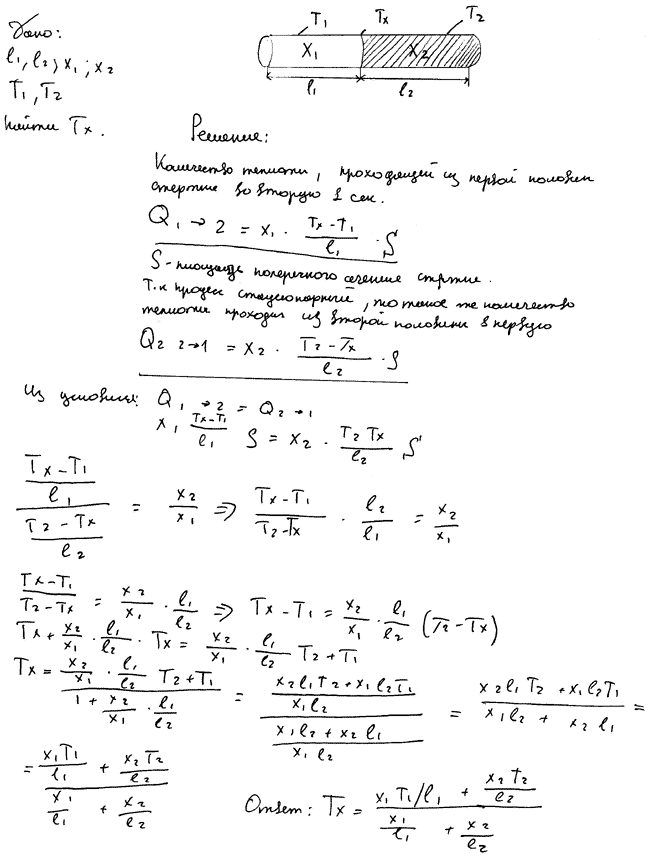 Дано:
l₁, l₂, x₁; x₂
T₁, T₂
Найти Tx.
T₁ Tx T₂
x₁ x₂
l₁ l₂
Решение:
Количество теплоты, проходящей из первой половин
стержня во вторую 1 сек.
Q₁ → 2 = x₁ · (Tx - T₁)/l₁ · S
S - площадь поперечного сечения
Т.к процесс стационарный, то такое же количество
теплоты проходит из второй половины в первую
Q₂ 2→1 = x₂ · (T₂ - Tx)/l₂ · S
Из условия: Q₁ → 2 = Q₂ → 1
x₁ (Tx - T₁)/l₁ S = x₂ · (T₂ Tx)/l₂ S
((Tx - T₁)/l₁)/((T₂ - Tx)/l₂) = x₂/x₁ ⇒ (Tx - T₁)/(T₂ - Tx) · l₂/l₁ = x₂/x₁
(Tx - T₁)/(T₂ - Tx) = x₂/x₁ · l₁/l₂ ⇒ Tx - T₁ = x₂/x₁ · l₁/l₂ (T₂ - Tx)
Tx + x₂/x₁ · l₁/l₂ · Tx = x₂/x₁ · l₁/l₂ T₂ + T₁
Tx = (x₂/x₁ · l₁/l₂ T₂ + T₁)/(1 + x₂/x₁ · l₁/l₂) = ((x₂l₁T₂ + x₁l₂T₁)/(x₁l₂))/((x₁l₂ + x₂l₁)/(x₁l₂)) = (x₂l₁T₂ + x₁l₂T₁)/(x₁l₂ + x₂l₁) =
= (x₁T₁/l₁ + x₂T₂/l₂)/(x₁/l₁ + x₂/l₂) Ответ: Tx = (x₁T₁/l₁ + x₂T₂/l₂)/(x₁/l₁ + x₂/l₂)